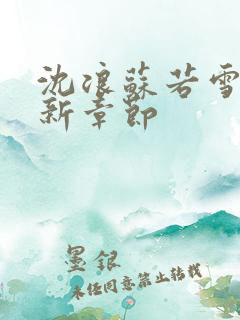 沈浪蘇若雪
新章節
墨銀
未經同意禁止轉載